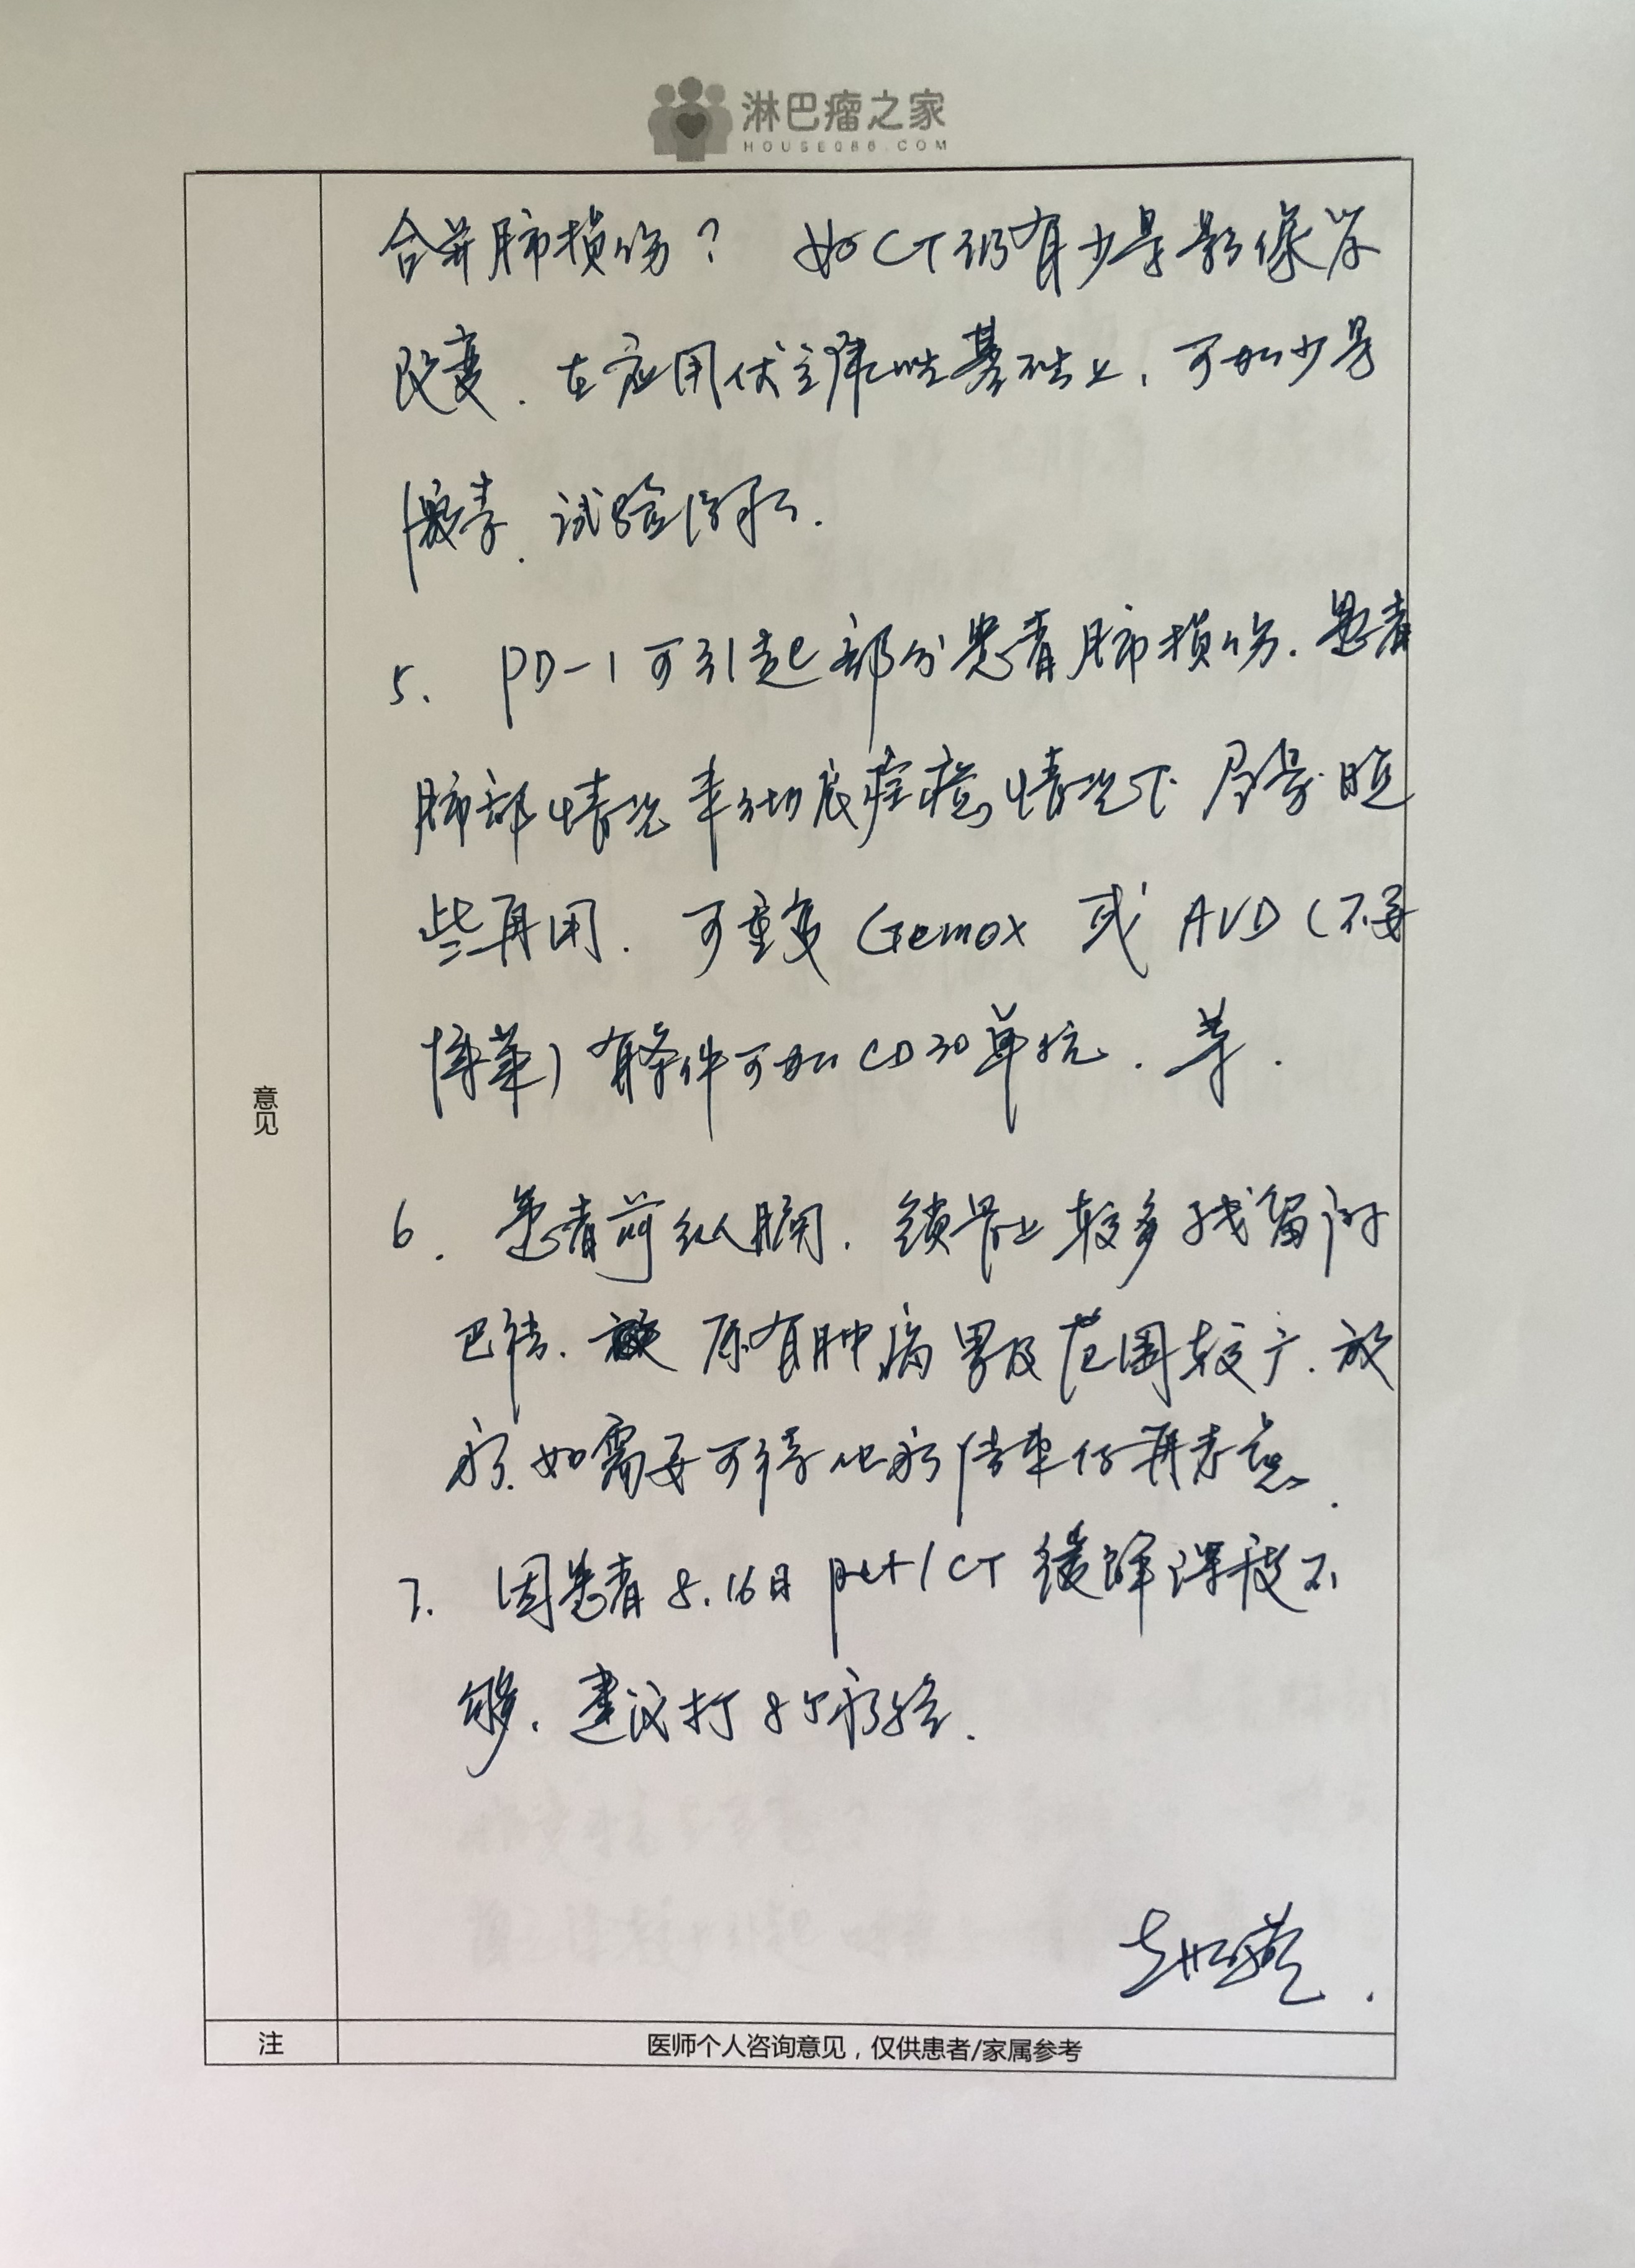 淋巴瘤之家
HOUSE086.COM
合并肺损伤? 如CT仍有少量影像学
改变. 在应用伏立康唑基础上, 可加少量
激素. 试验治疗.
5. PD-1可引起部分患者肺损伤. 患者
肺部情况未彻底控制情况下 尽量晚
些再用. 可重复 Gemox 或 AVD (不要
博莱) 有条件可加CD30单抗. 等.
6. 患者前纵膈. 锁骨上较多残留淋
巴结. 原有肿瘤累及范围较广. 放
疗. 如需要可待化疗结束后再考虑.
7. 因患者8.16日pet/CT缓解深度不
够. 建议打8个疗程.
意见
注
医师个人咨询意见,仅供患者/家属参考